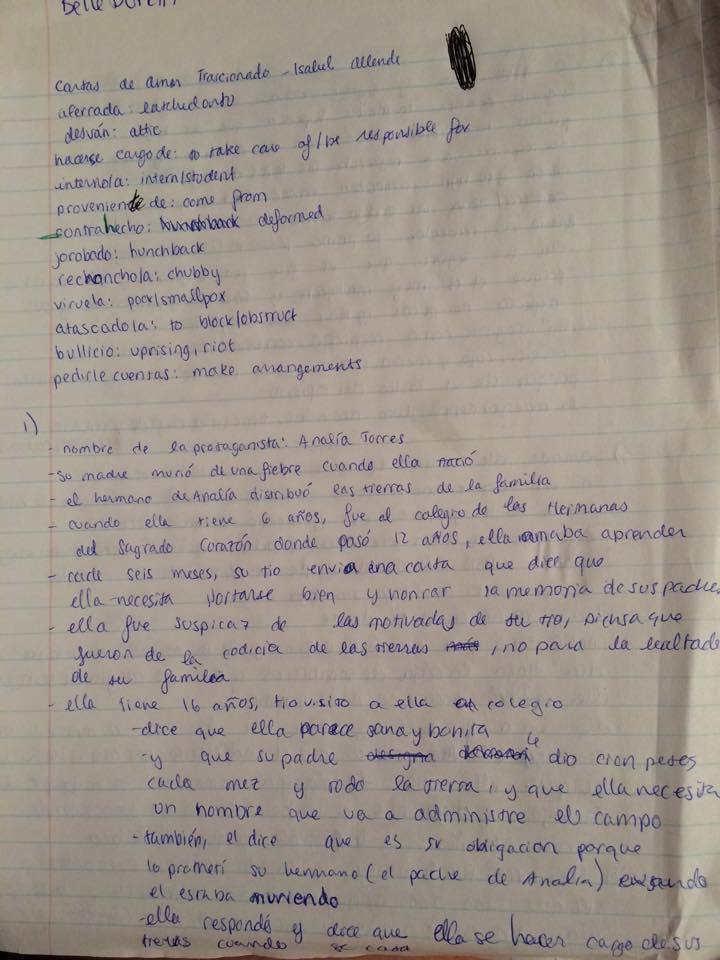 Belle
Cartas de amor Traicionado - Isabel Allende
aferrada:
desván: attic
hacerse cargo de: to take care of/be responsible for
interno/a: intern/student
proveniente de: come from
contrahecho: deformed
jorobado: hunchback
rechoncho/a: chubby
viruela: pock/smallpox
atascado/a: to block/obstruct
bullicio: uprising, riot
pedirle cuentas: make arrangements
1)
- nombre de la protaganista: Analía Torres
- Su madre murió de una fiebre cuando ella nació
- el hermano de Analía distribuó las tierras de la familia
- cuando ella tiene 6 años, fue al colegio de las Hermanas
del Sagrado Corazón donde pasó 12 años, ella amaba aprender
- cada seis meses, su tio envia una carta que dice que
ella necesita portarse bien y honrar la memoria de sus padres
- ella fue suspicaz de las motivadas de su tio, piensa que
fueron de la codicia de las tierras, no para la lealtad
de su familia
- ella tiene 16 años, tio visito a ella en colegio
- dice que ella parece sana y bonita
- y que su padre le dio cien pesos
cada mez y todo la tierra, y que ella necesita
un hombre que va a administre el campo
- también, el dice que es su obligacion porque
lo prometí su hermano (el padre de Analía) cuando
el estaba muriendo
- ella respondé y dice que ella se hacer cargo de sus
tierras cuando se casa